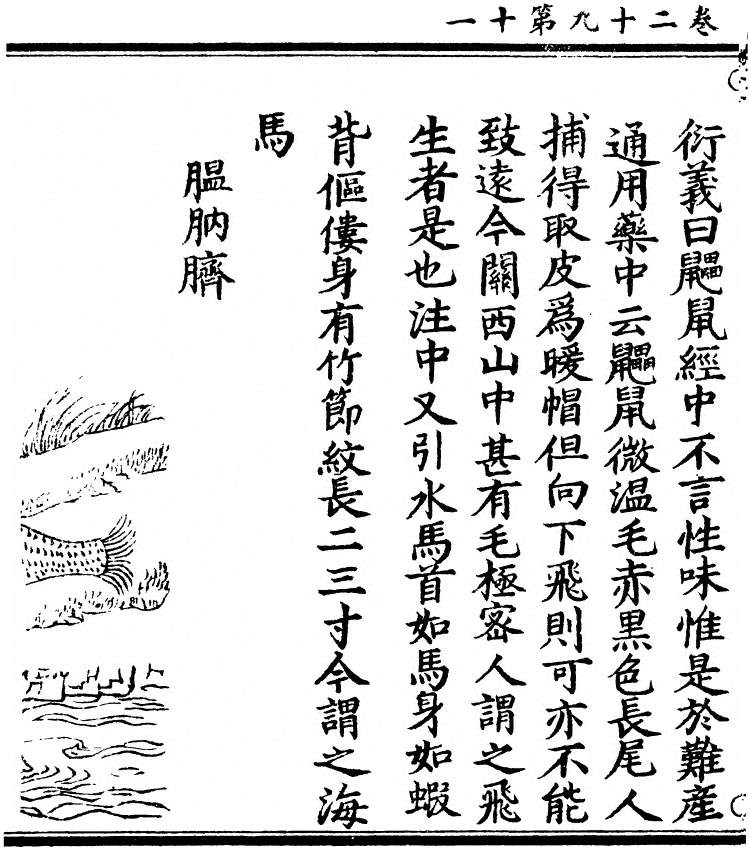 卷二十九第十一
衍義曰鼺鼠經中不言性味惟是於難産
通用藥中云鼺鼠微温毛赤黒色長尾人
捕得取皮爲暖帽但向下飛則可亦不能
致遠今關西山中甚有毛極宻人謂之飛
生者是也注中又引水馬首如馬身如蝦
背傴僂身有竹節紋長二三寸今謂之海
馬
膃肭臍